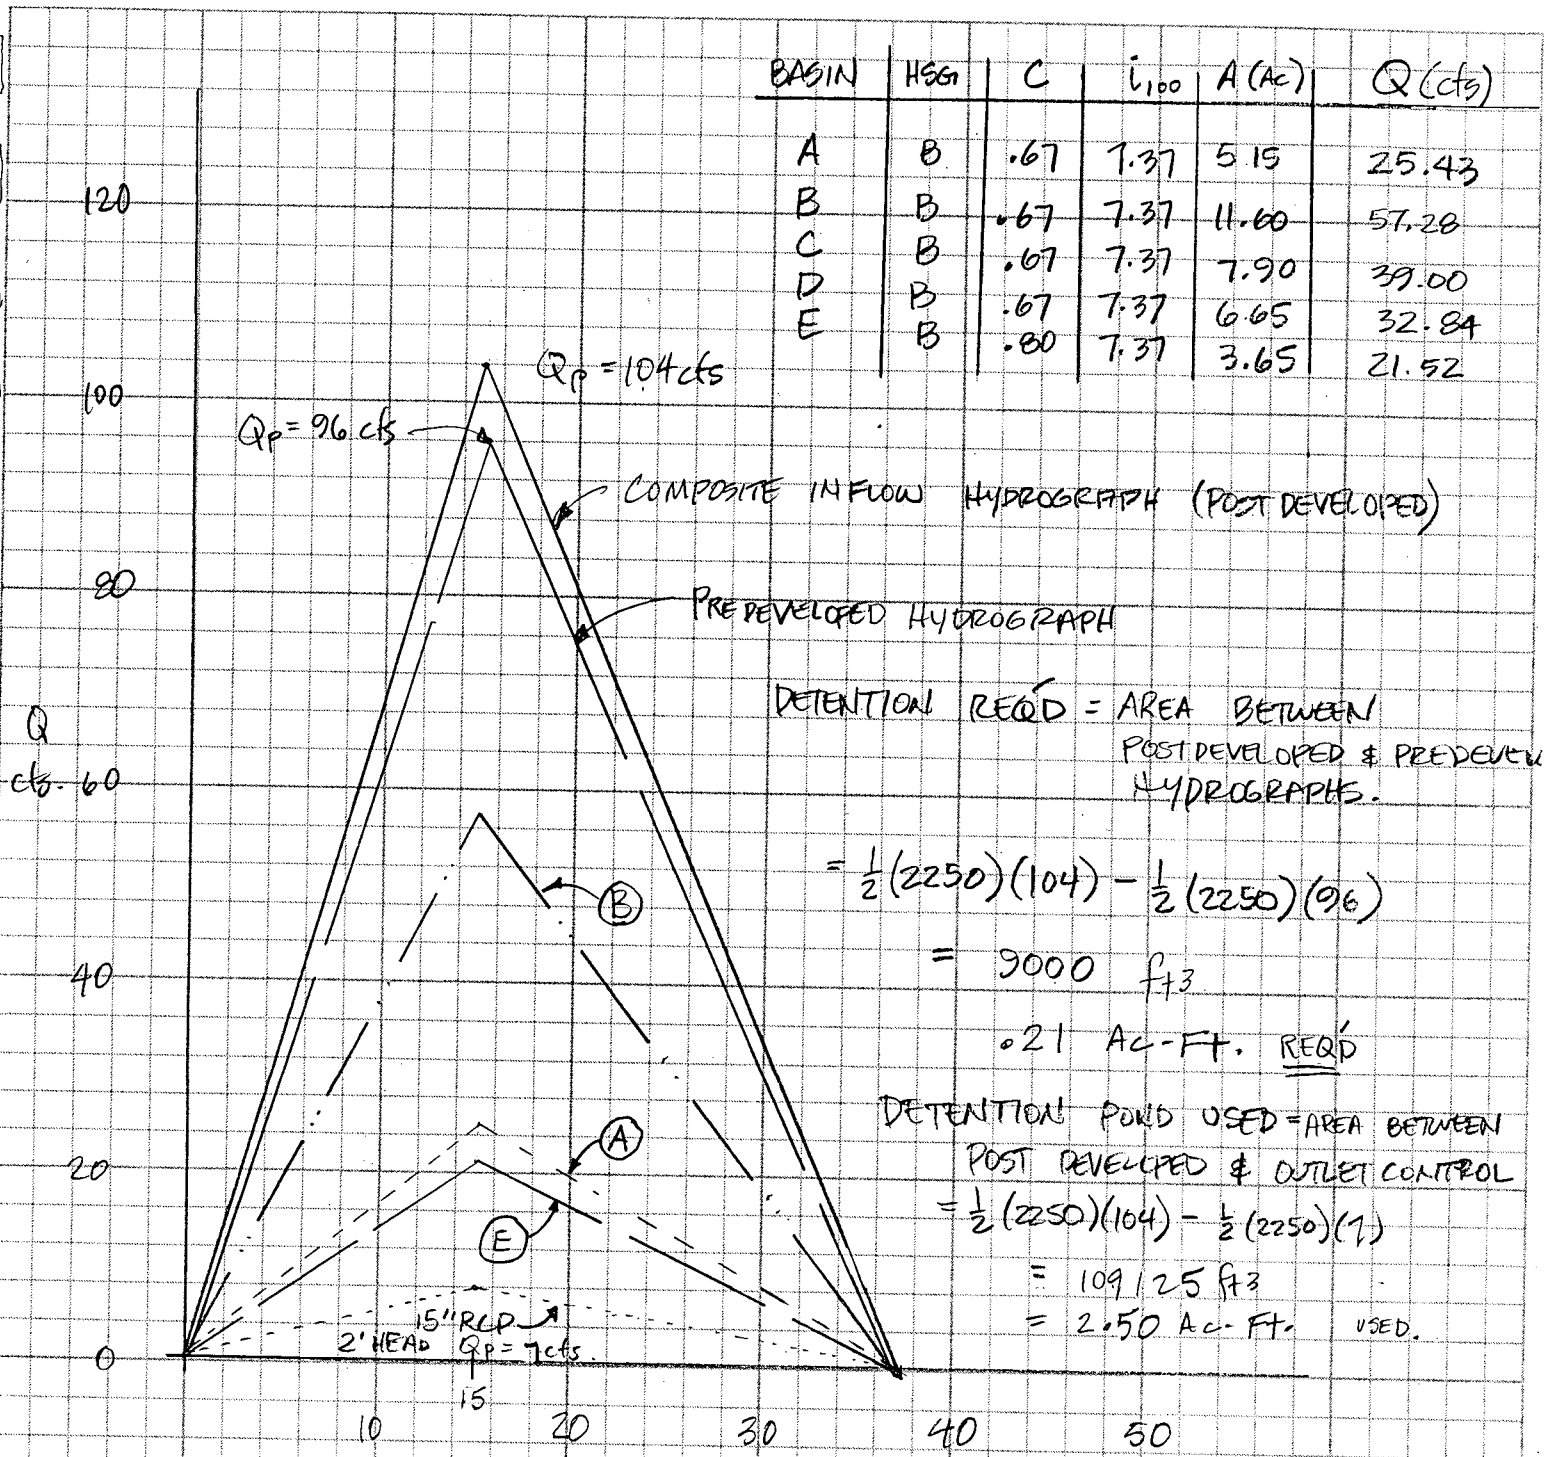 BASIN HSG C i100 A (AC) Q (cfs)
A B .67 7.37 5.15 25.43
B B .67 7.37 11.60 57.28
C B .67 7.37 7.90 39.00
D B .67 7.37 6.65 32.84
E B .80 7.37 3.65 21.52
120
100
80
Q
cfs. 60
40
20
0
Qp = 104 cfs
Qp = 96 cfs
COMPOSITE INFLOW HYDROGRAPH (POST DEVELOPED)
PREDEVELOPED HYDROGRAPH
DETENTION REQ'D = AREA BETWEEN
POSTDEVELOPED & PREDEVEL
HYDROGRAPHS.
= 1/2 (2250)(104) - 1/2 (2250)(96)
= 9000 ft3
.21 Ac-Ft. REQ'D
B
A
E
DETENTION POND USED = AREA BETWEEN
POST DEVELOPED & OUTLET CONTROL
= 1/2 (2250)(104) - 1/2 (2250)(7)
= 109125 ft3
= 2.50 Ac-Ft. USED.
15" RCP
2' HEAD Qp = 7cfs.
15
10 20 30 40 50